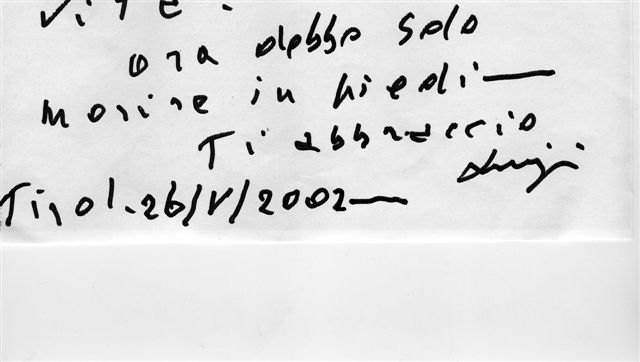 vite.
ora debbo solo
morire in piedi—
Ti abbraccio
Luigi
Tirol. 26/V/2002—